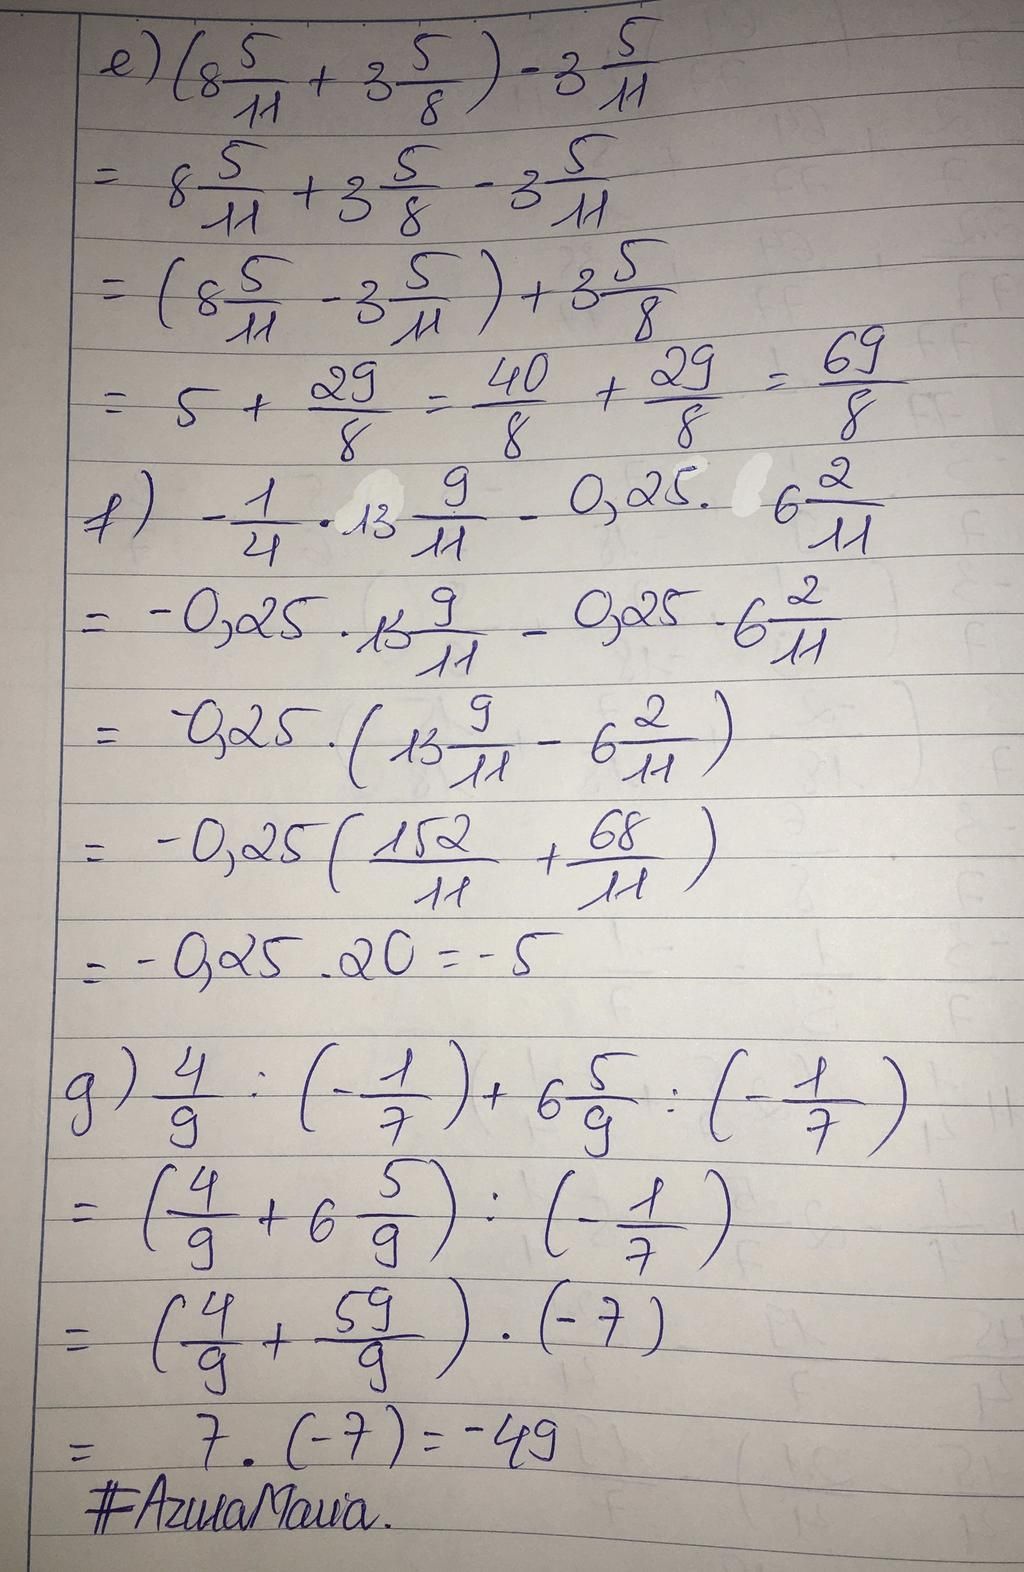 e) (8 5/11 + 3 5/8) - 3 5/11
= 8 5/11 + 3 5/8 - 3 5/11
= (8 5/11 - 3 5/11) + 3 5/8
= 5 + 29/8 = 40/8 + 29/8 = 69/8
f) -1/4 . 13 9/11 - 0,25. 6 2/11
= -0,25 . 13 9/11 - 0,25 . 6 2/11
= -0,25 . (13 9/11 - 6 2/11)
= -0,25 (152/11 + 68/11)
= -0,25 . 20 = -5
g) 4/9 : (-1/7) + 6 5/9 : (-1/7)
= (4/9 + 6 5/9) : (-1/7)
= (4/9 + 59/9) . (-7)
= 7 . (-7) = -49
#AzusaMaria.